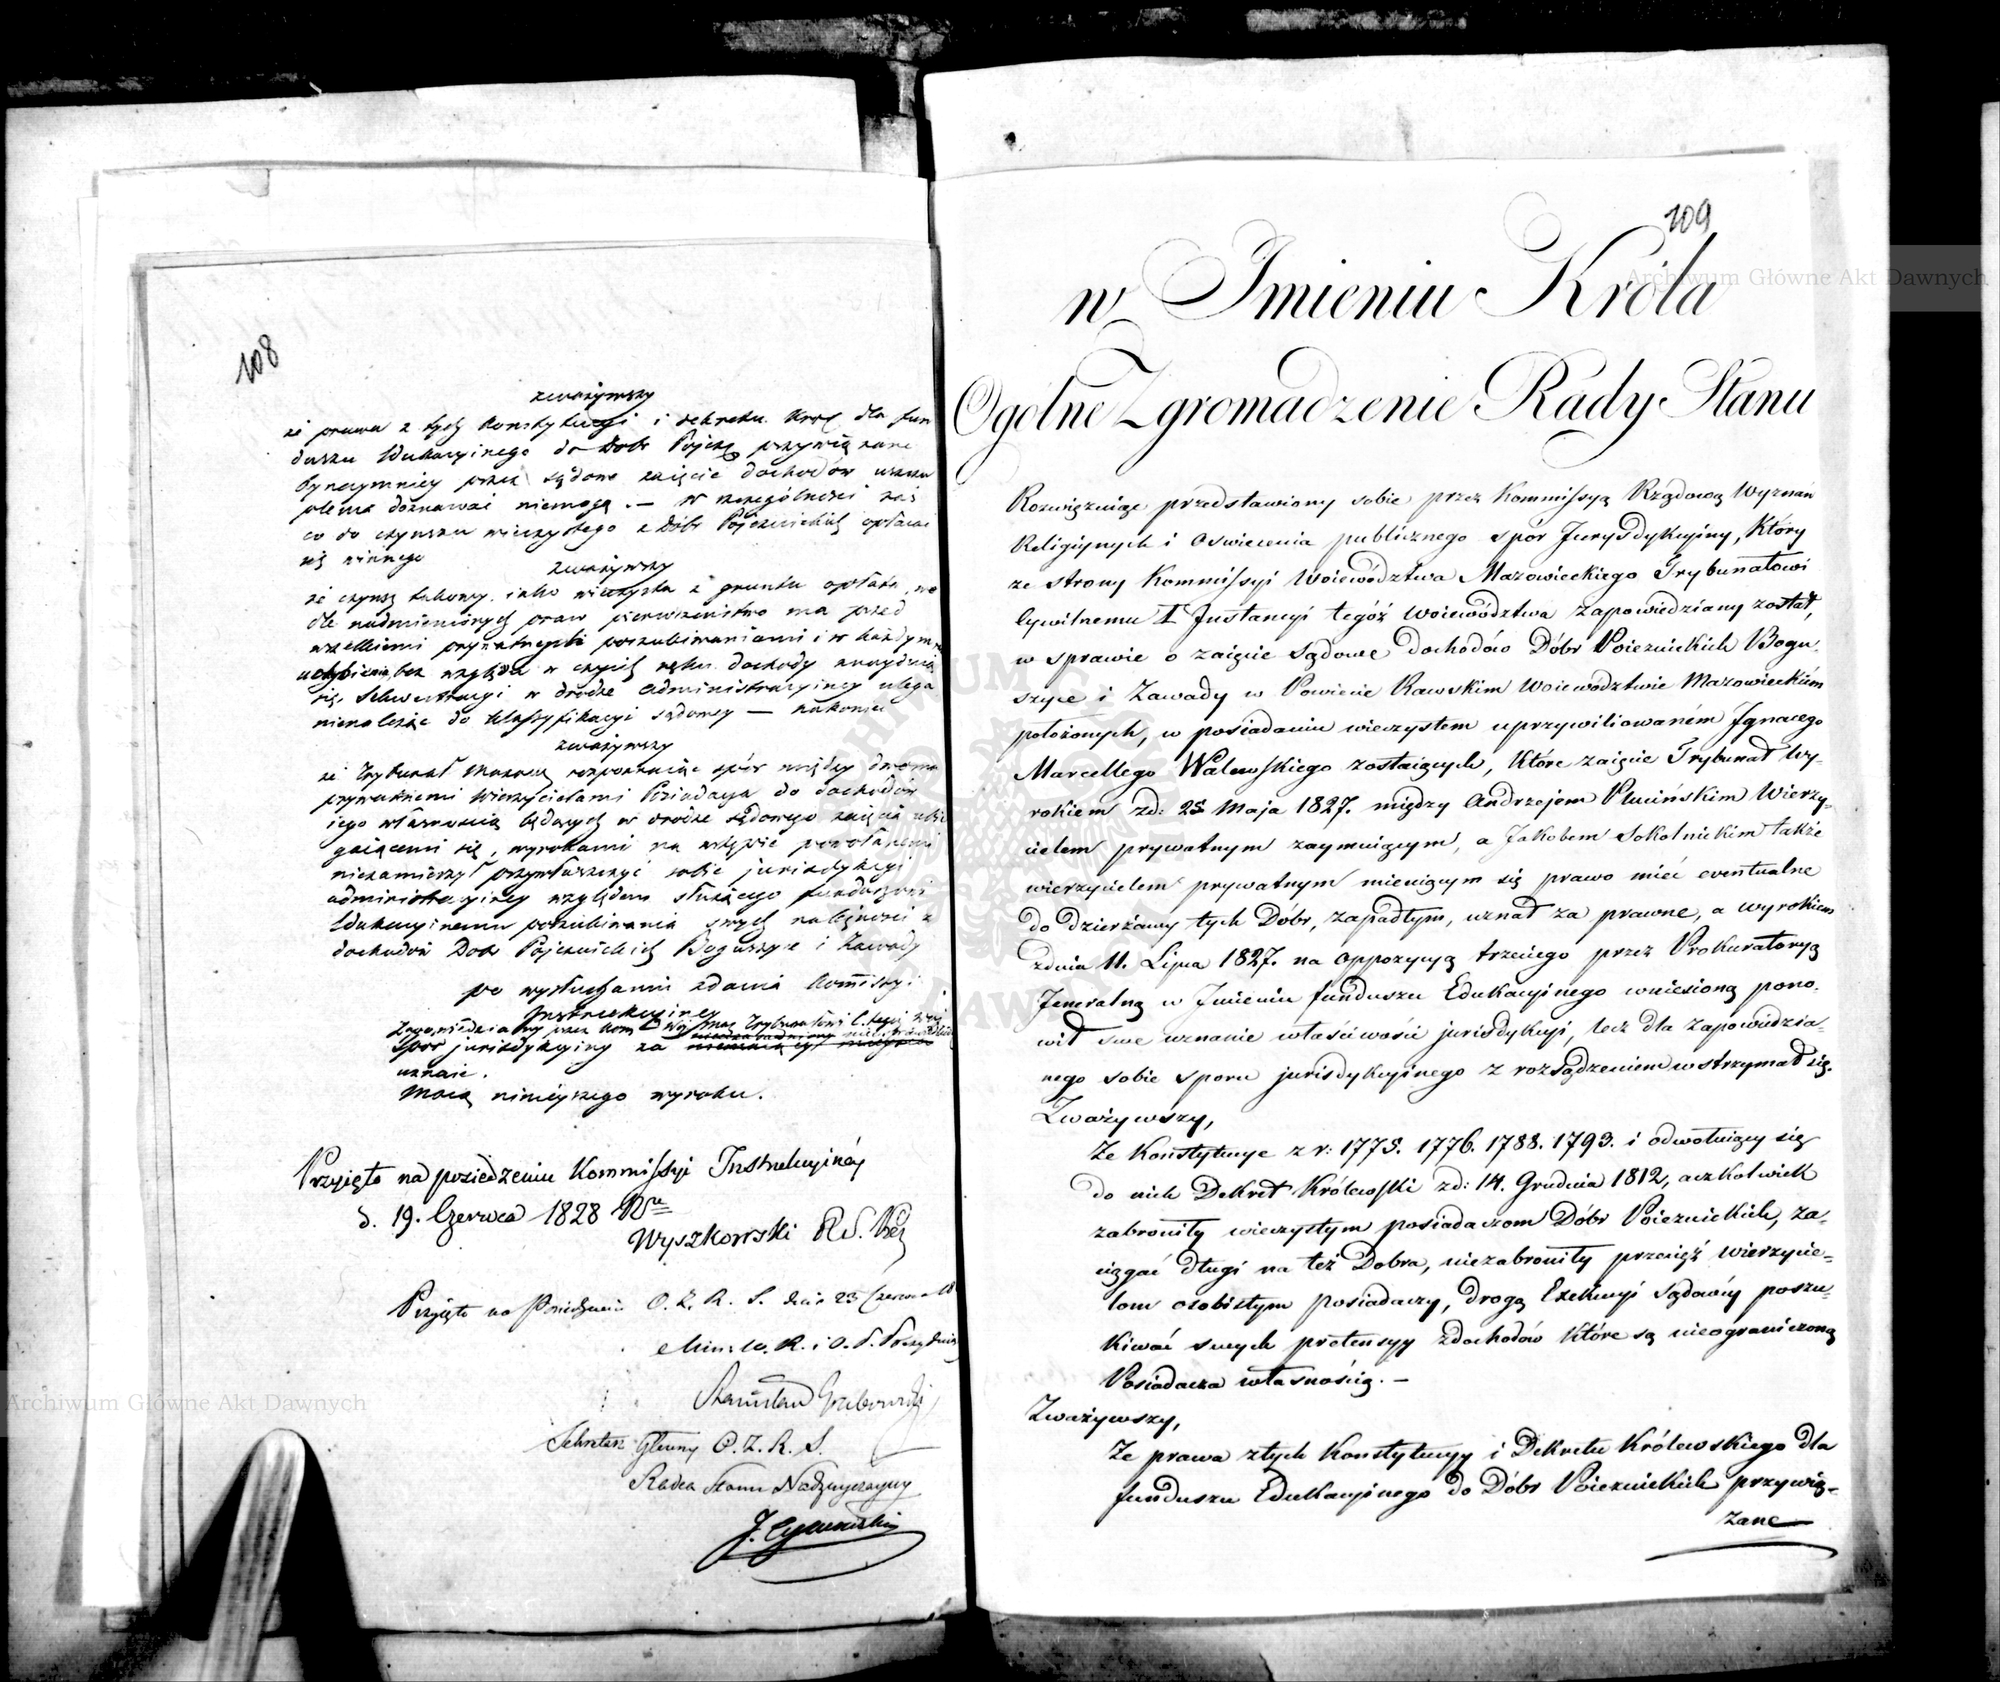 108
zważywszy
że prawa z tych Konstytucyi i dekretu Król dla fun
duszu Edukacyinego do Dobr Pojez przywiązane
bynaymniey przez sądowe zaięcie dochodów uszczu
plenia doznawać niemogą. — W szczególności zaś
co do czynszu wieczystego z Dóbr Pojezuickich opłacać
się winnego
zważywszy
że czynsz takowy, iako wieczysta z gruntu opłata, we
dle nadmienionych praw pierwszeństwo ma przed
wszelkiemi prywatnych poszukiwaniami i w każdym
uchybieniu, bez względu w czyich ręku dochody znayduią
się, Sekwestracyi w drodze administracyiney ulega
nienależąc do klassyfikacyi sądowey — nakoniec
zważywszy
że Trybunał Mazow rozpoznaiąc spór między dwoma
prywatnemi Wierzycielami Posiadacza do dochodów
iego własnością będących w drodze sądowego zaięcia ubie
gaiącemi się, wyrokami na wstępie powołanemi
niezamierzył przywłaszczyć sobie jurisdykcyi
administracyiney względem służącego funduszowi
Edukacyinemu poszukiwania swych należności z
dochodów Dobr Pojezuickich Boguszyce i Zawady
po wysłuchaniu zdania Kommissyi
Instrukcyiney
Zapowiedziany przez Kom Woj Maz Trybunałowi C. tegoż Woj
spor jurisdykcyiny za
uznaie.
Mocą ninieyszego wyroku.
Przyięto na posiedzeniu Kommissyi Instrukcyinéy
d. 19. Czerwca 1828 Ru
Wyszkowski R. S.
Przyięto na Posiedzeniu O. Z. R. S. dnia 23 Czerwca 18
Minister W. R. i O. P. Prezyduiący
Stanisław Grabowski
Sekretarz Główny O. Z. R. S.
Radca Stanu Nadzwyczayny
109
w Imieniu Króla
Ogólne Zgromadzenie Rady Stanu
Rozwiązuiąc przedstawiony sobie przez Kommissyą Rządową Wyznań
Religiynych i Oswiecenia publicznego spór Jurysdykcyiny, Który
ze strony Kommissyi Woiewództwa Mazowieckiego Trybunałowi
Cywilnemu I Instancyi tegóż Woiewództwa zapowiedziany został,
w sprawie o zaięcie Sądowe dochodów Dóbr Poiezuickich Bogu-
szyce i Zawady w Powiecie Rawskim Woiewodztwie Mazowieckiém
położonych, w posiadaniu wieczystem uprzywiliowaném Ignacego
Marcellego Walewskiego zostaiących, Które zaięcie Trybunał Wy-
rokiem zd: 25 Maja 1827. między Andrzejem Plucińskim Wierzy-
cielem prywatnym zaymuiącym, a Jakobem Sokolnickim także
wierzycielem prywatnym mieniącym się prawo mieć eventualne
do dzierżawy tych Dóbr, zapadłym, uznał za prawne, a wyrokiem
zdnia 11. Lipca 1827. na Oppozycyą trzeciego przez Prokuratoryą
Jeneralną w Imieniu funduszu Edukacyinego wniesioną pono-
wił swe uznanie właściwości jurisdykcyi, lecz dla zapowiedzia-
nego sobie sporu jurisdykcyinego z rozsądzeniem wstrzymał się.
Zważywszy,
Ze Konstytucye z r: 1775. 1776. 1788. 1793. i odwołuiący się
do nich Dekret Królewski zd: 14. Grudnia 1812, aczkolwiek
zabroniły wieczystym posiadaczom Dóbr Poiezuickich, za-
ciągać długi na też Dobra, niezabroniły przecięż wierzycie-
lom osobistym posiadaczy, drogą Exekucyi Sądowéy poszu-
kiwać swych pretensyy zdochodów Które są nieograniczoną
Posiadacza własnością. —
Zważywszy,
Ze prawa ztych Konstytucyy i Dekretu Królewskiego dla
funduszu Edukacyinego do Dóbr Poiezuickich przywią-
zane
Archiwum Główne Akt Dawnych
Archiwum Główne Akt Dawnych